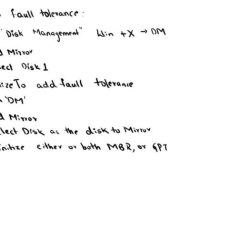 fault tolerance:
"Disk Management" Win + X → DM
Mirror
Disk 1
To add fault tolerance
'DM'
Mirror
Disk as the disk to Mirror
either or both MBR, or GPT